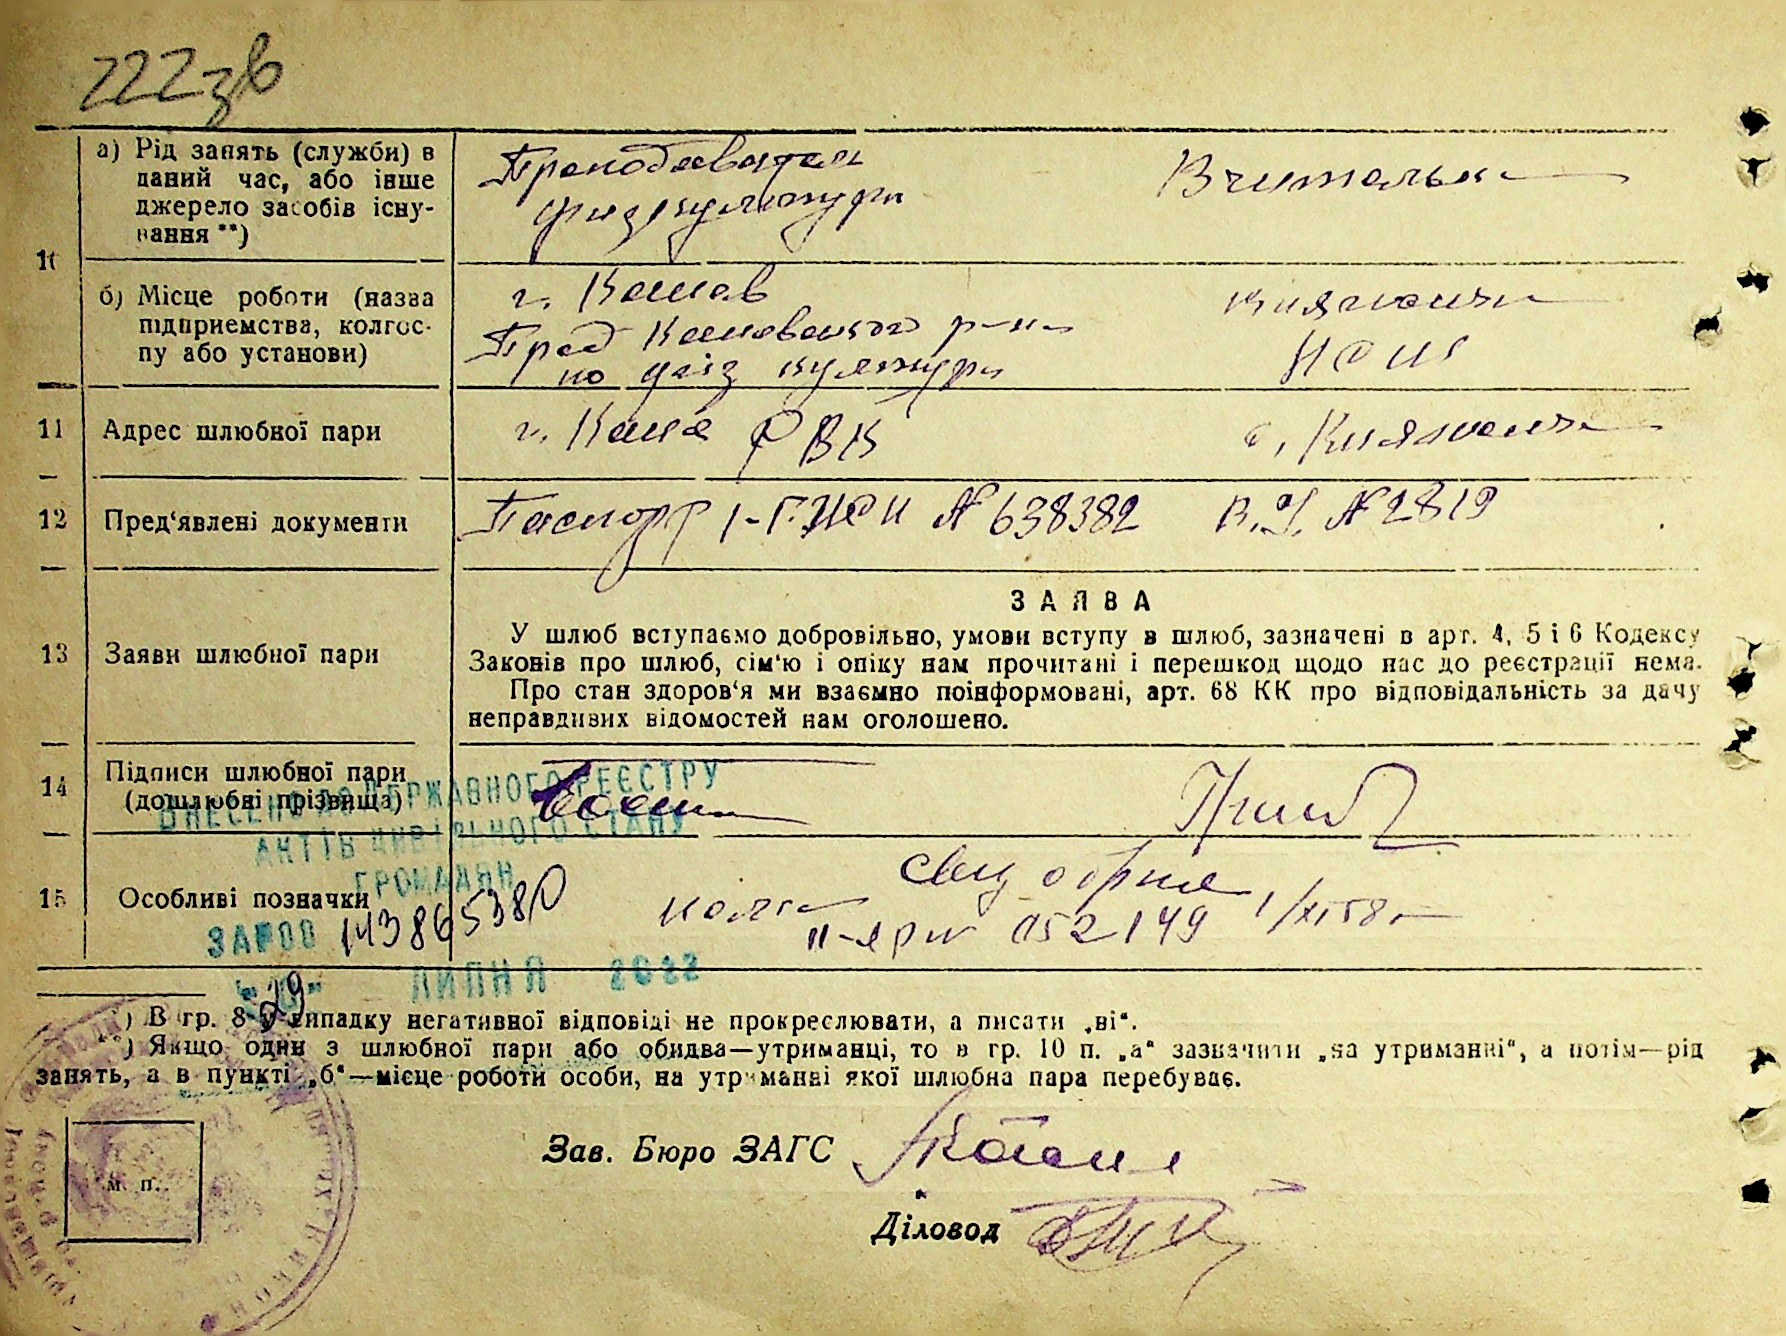 222зв
а) Рід занять (служби) в
даний час, або інше
джерело засобів існу-
вання **)
Преподаватель
физкультуры
Вчителька
10
б) Місце роботи (назва
підприємства, колгос-
пу або установи)
г. Канев
Пред Каневского р-на
по физ культуры
НСШ
11
Адрес шлюбної пари
г. Канев РВК
с.
12
Пред‘явлені документи
Паспорт № 638382
№ 2819
13
Заяви шлюбної пари
ЗАЯВА
У шлюб вступаємо добровільно, умови вступу в шлюб, зазначені в арт. 4, 5 і 6 Кодексу
Законів про шлюб, сім‘ю і опіку нам прочитані і перешкод щодо нас до реєстрації нема.
Про стан здоров‘я ми взаємно поінформовані, арт. 68 КК про відповідальність за дачу
неправдивих відомостей нам оголошено.
14
Підписи шлюбної пари
(дошлюбні прізвища)
ВНЕСЕНО ДО ДЕРЖАВНОГО РЕЄСТРУ
АКТІВ ЦИВІЛЬНОГО СТАНУ
ГРОМАДЯН
15
Особливі позначки
1/XI 58 г
052149
143865380
29 ЛИПНЯ 2022
*) В гр. 8 у випадку негативної відповіді не прокреслювати, а писати „ні“.
**) Якщо один з шлюбної пари або обидва—утриманці, то в гр. 10 п. „а“ зазначити „на утриманні“, а потім—рід
занять, а в пункті „б“—місце роботи особи, на утриманні якої шлюбна пара перебуває.
Зав. Бюро ЗАГС
м. п.
Діловод